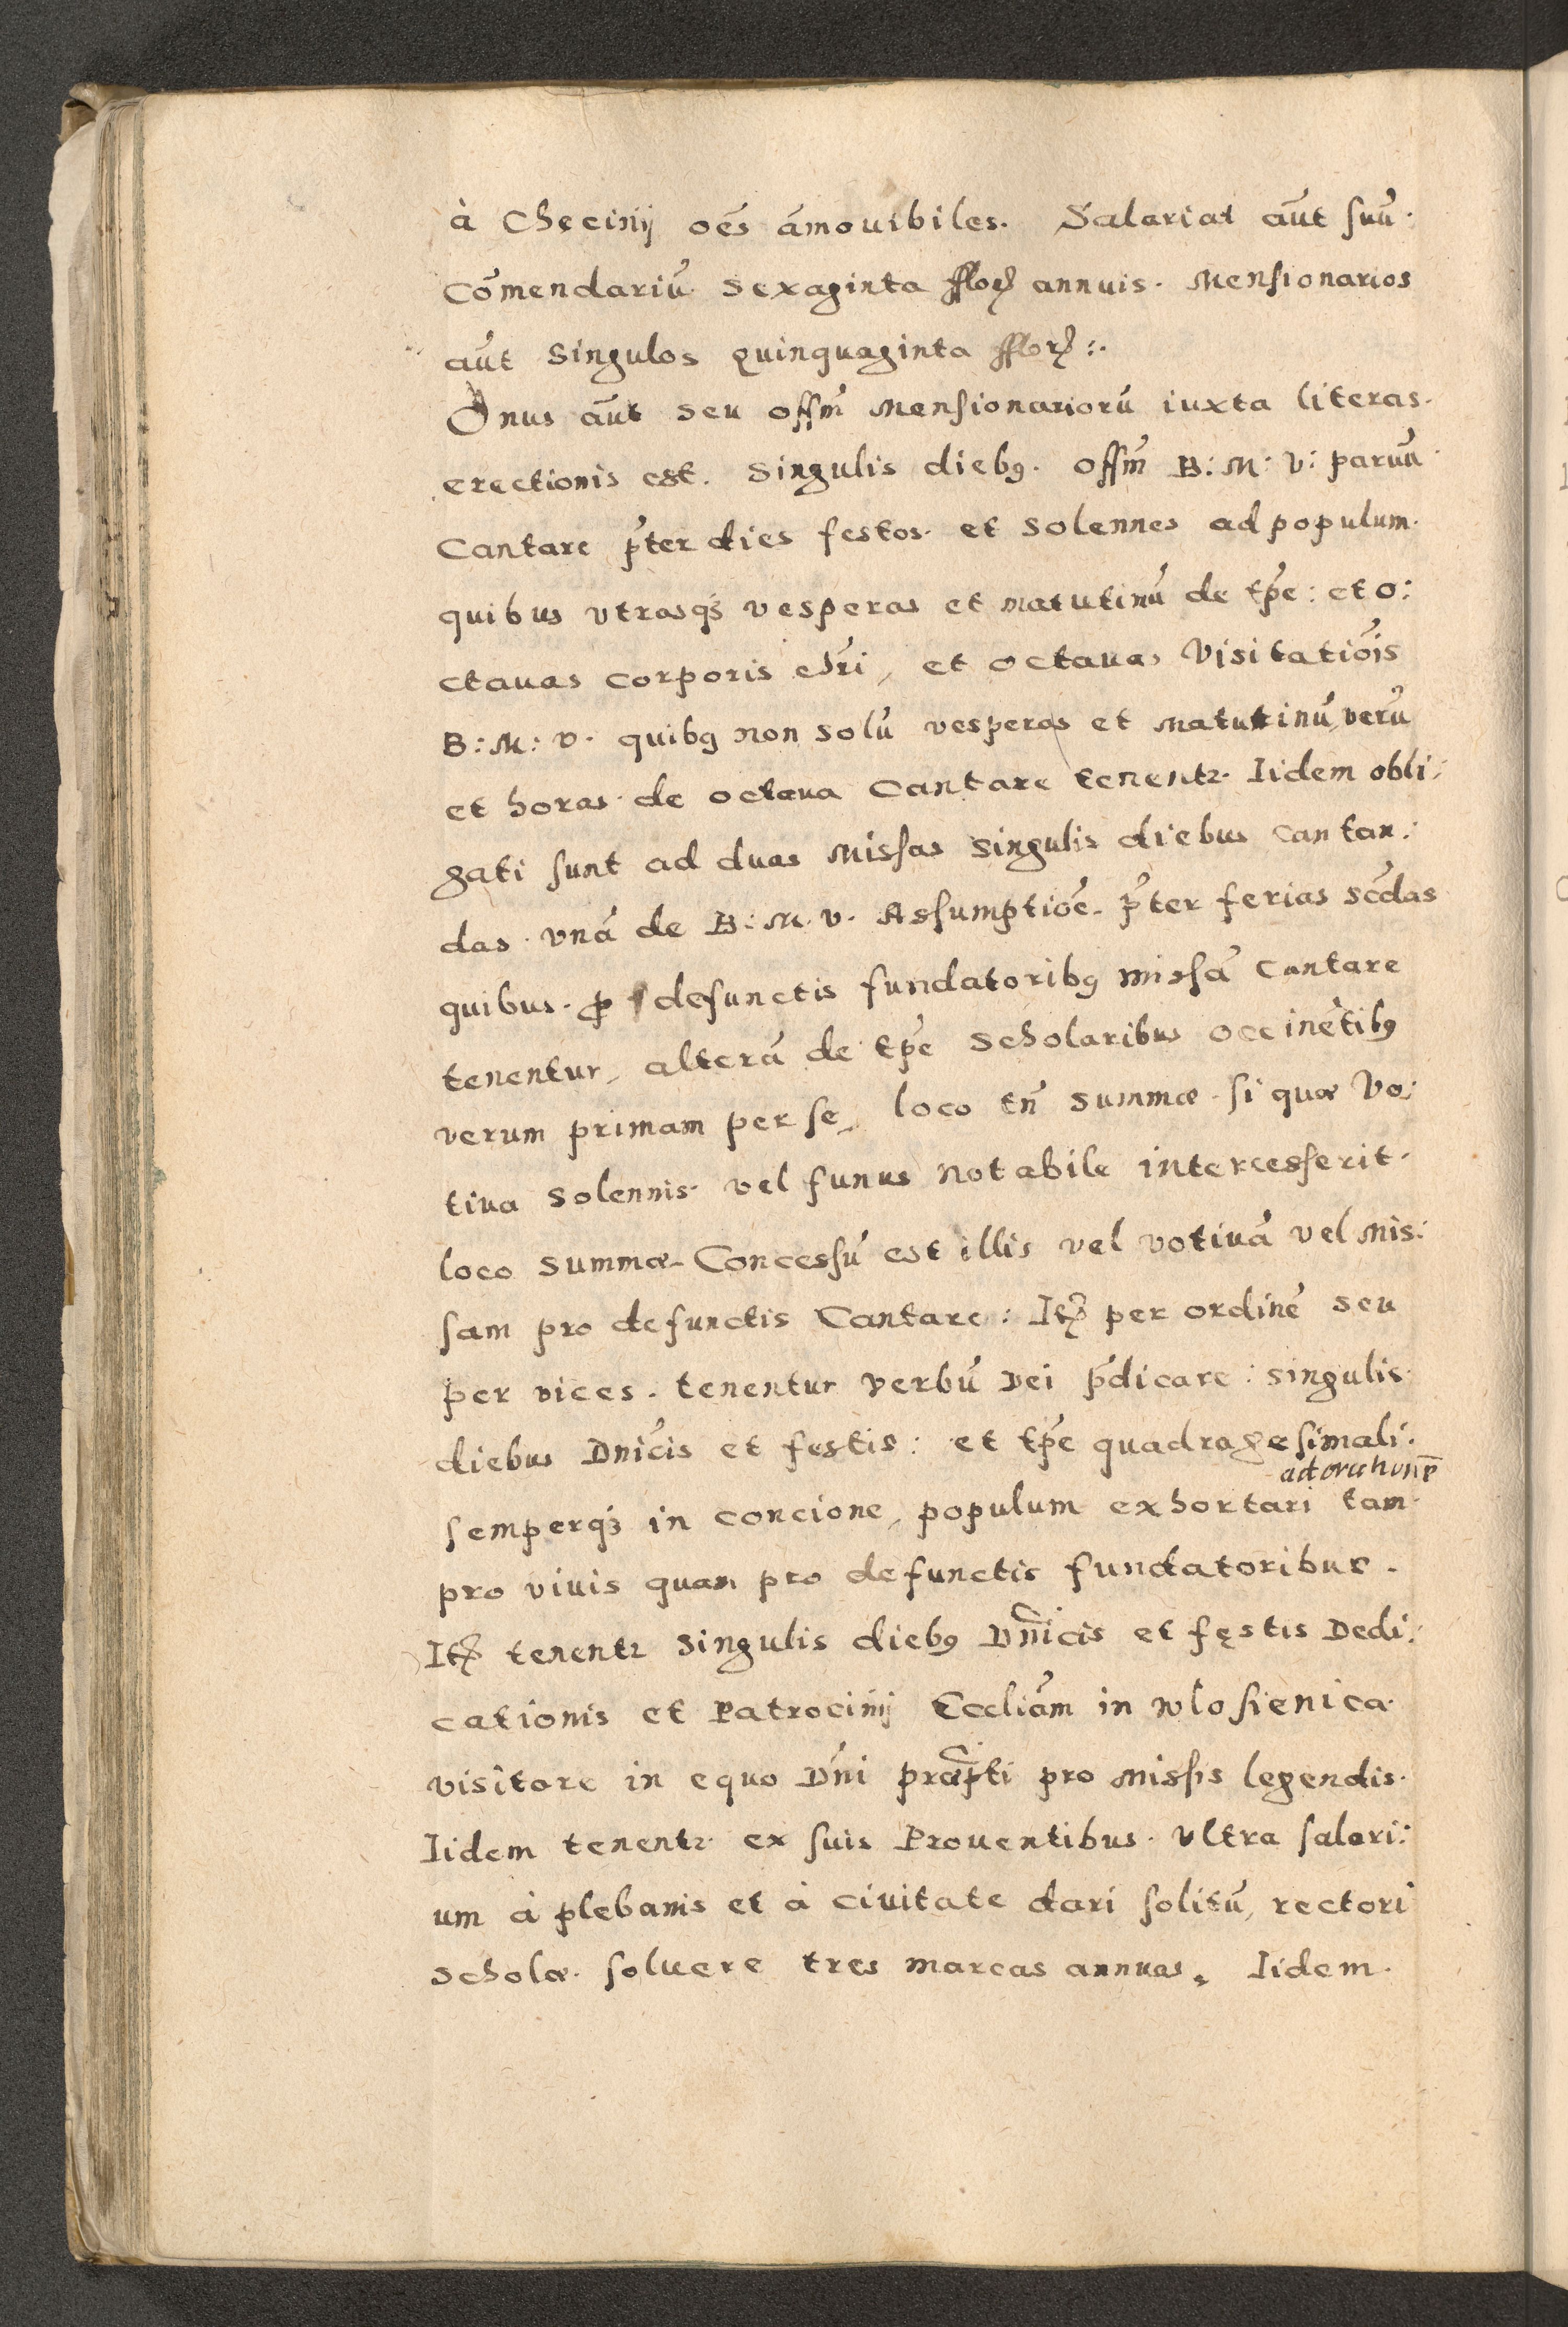 à Chęcinij oe͠s amouibiles. Salariat au͠t suu͠.
Co͠mendariu͠ sexaginta fflor. annuis. Mensionarios
au͠t singulos quinquaginta fflor:.
Onus au͠t seu off͠m Mensionarioru͠ iuxta literas.
erectionis est. Singulis dieb9. off͠m B: M: V: paruu͠
Cantare p͠ter dies festos. et solennes ad populum.
quibus vtrasq3 vesperas et matutinu͠ de tp͠e: et o:
ctauas corporis ch͠ri, et octauas Visitatio͠is
B: M: V. quib9 non solu͠ vesperas et matutinu͠, veru͠
et horas de octaua Cantare tenentr. Iidem obli:
gati sunt ad duas Missas singulis diebus cantan:
das. vna͠ de B: M. V. Assumptio͠e. p͠ter ferias sc͠das
quibus. ꝓ defunctis fundatorib9 missa͠ cantare
tenentur, altera͠ de tp͠e scholaribus occine͠tib9
verum primam per se, loco tn͠ summæ. si quæ Vo:
tiua solennis. vel funus notabile intercesserit.
loco summæ. Concessu͠ est illis vel votiua͠ vel Mis:
sam pro defunctis Cantare: It. per ordine͠ seu
per vices. tenentur verbu͠ Dei p͠dicare: singulis
diebus Dni͠cis et festis: et tp͠e quadragesimali.
ad oratione͠
semperq3 in concione, populum exhortari tam.
pro viuis quam pro defunctis fundatoribus.
It. tenentr singulis dieb9 Dn͠icis et fęstis Dedi:
cationis et Patrocinij Eccli͠am in Wlosienica.
visitare in equo Dn͠i præp͠ti pro missis legendis.
Iidem tenentr. ex suis Prouentibus. Vltra salari:
um à plebanis et à ciuitate dari solitu͠, rectori
scholæ. soluere tres marcas annuas. Iidem.